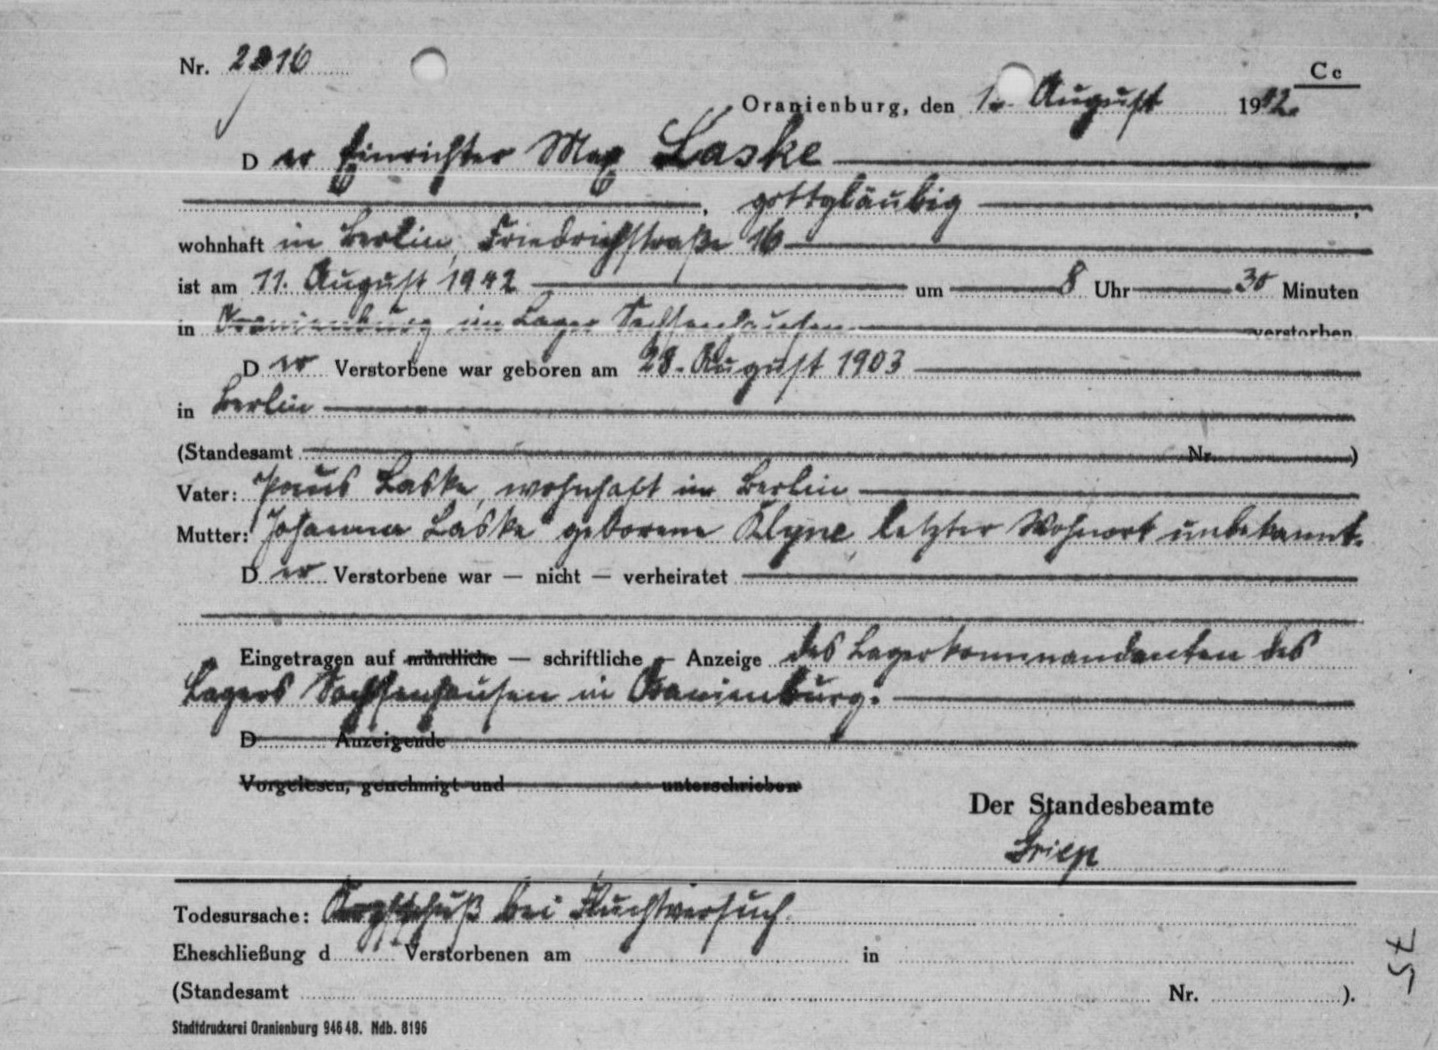 Nr. 2216
C c
Oranienburg, den 1 . August 1942.
D er Einrichter Max Laske
, gottgläubig ,
wohnhaft in Berlin, Friedrichstraße 16
ist am 11. August 1942 um 8 Uhr 30 Minuten
in Oranienburg im Lager Sachsenhausen verstorben
D er Verstorbene war geboren am 28. August 1903
in Berlin
(Standesamt Nr. )
Vater: Paul Laske, wohnhaft in Berlin
Mutter: Johanna Laske geborene Klyne, letzter Wohnort unbekannt.
D er Verstorbene war — nicht — verheiratet
Eingetragen auf mündliche — schriftliche — Anzeige des Lagerkommandanten des
Lagers Sachsenhausen in Oranienburg.
D Anzeigende
Vorgelesen, genehmigt und unterschrieben
Der Standesbeamte
Griep
Todesursache: Kopfschuß bei Fluchtversuch
Eheschließung d Verstorbenen am in
(Standesamt Nr. ).
Stadtdruckerei Oranienburg 946 48. Ndb. 8196
75